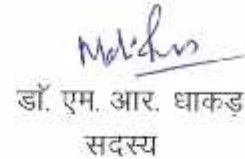 डॉ. एम. आर. धाकड़
सदस्य